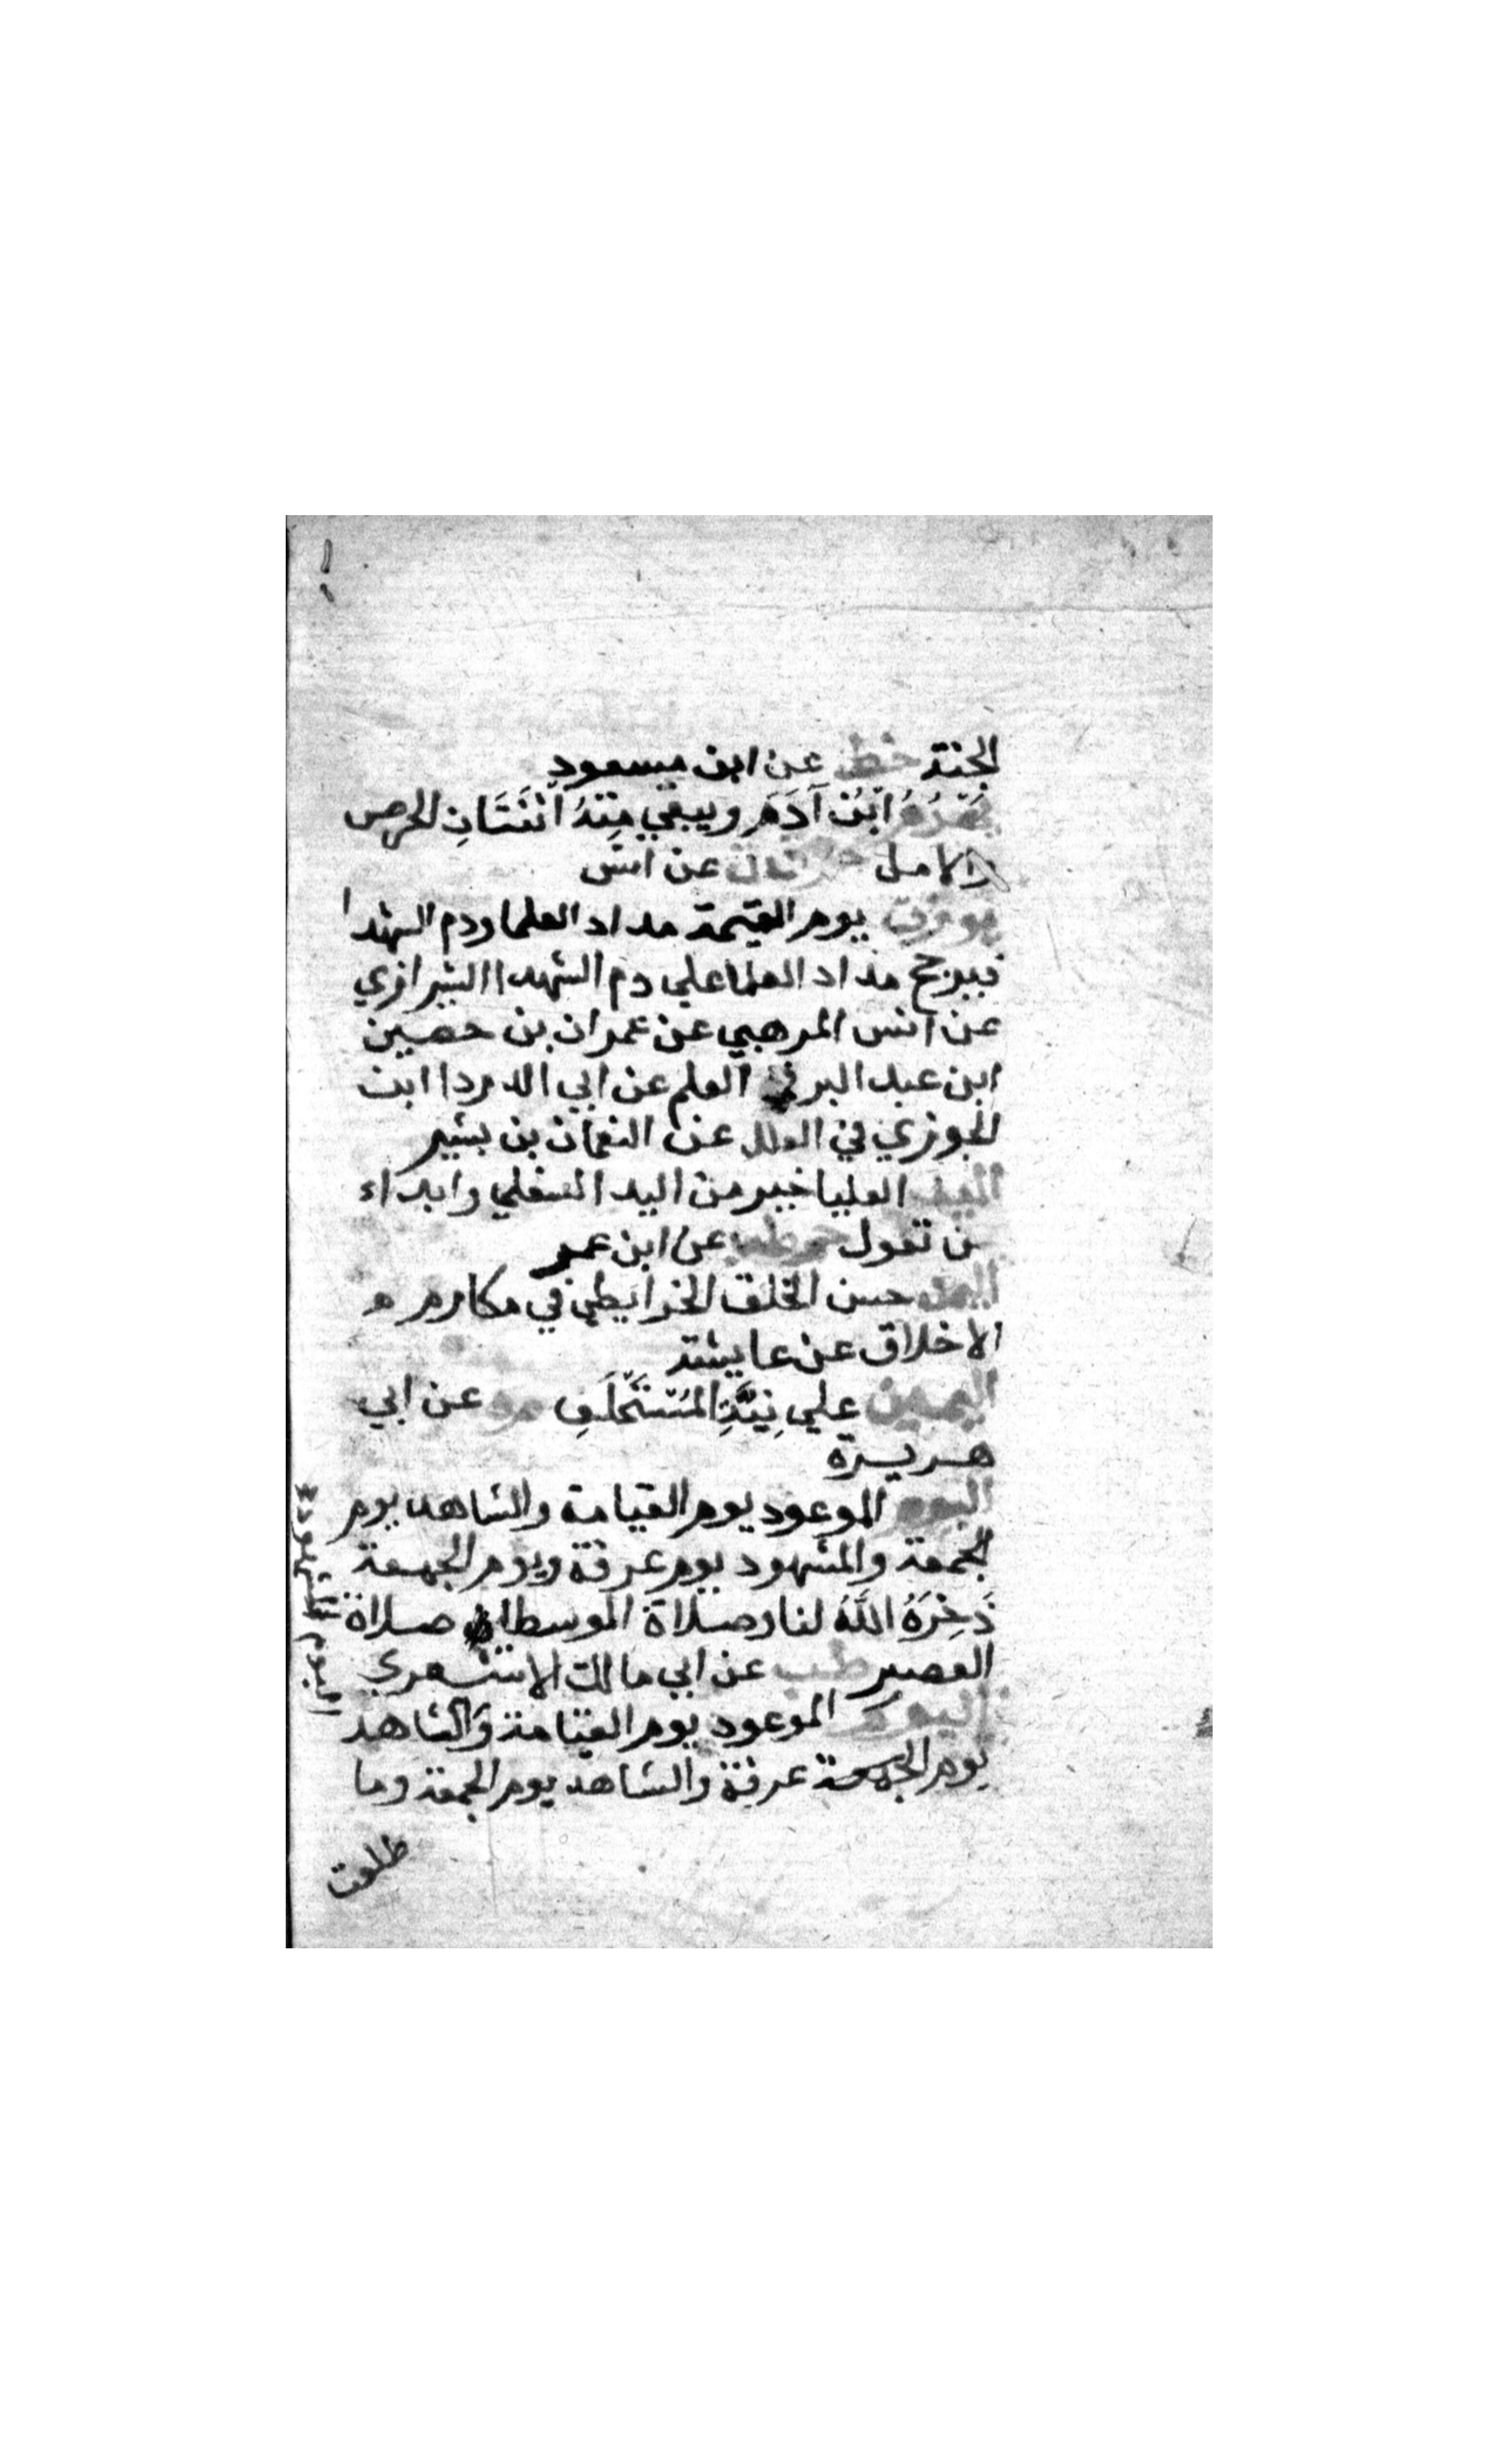 الجنة خط عن ابن مسعود
يَهْرَمُ ابْنُ آدَمَ ويبقي مِنْهُ اثْنَتَانِ الحرص
والامل حم ق ن عن انس
يوزن يوم القيمة مداد العلما ودم الشهدا
فيرجح مداد العلما علي دم الشهدا الشيرازي
عن انس المرهبي عن عمران بن حصين
ابن عبد البر في العلم عن ابي الدردا ابن
الجوزي في العلل عن النعمان بن بشير
اليد العليا خير من اليد السفلي وابداء
بمن تعول حم طب عن ابن عمر
اليمن حسن الخلق الخرايطي في مكارم
الاخلاق عن عايشة
اليمين علي نِيَّةِ المُسْتَحْلِفِ م ه عن ابي
هريرة
اليوم الموعود يوم القيامة والشاهد يوم
الجمعة والمشهود يوم عرفة ويوم الجمعة
ذَخِرَهُ اللَّهُ لنا وصلاة الوسطا صلاة
العصر طب عن ابي مالك الاشعري
اليوم الموعود يوم القيامة والشاهد
يوم الجمعة عرفة والشاهد يوم الجمعة وما
طلعت